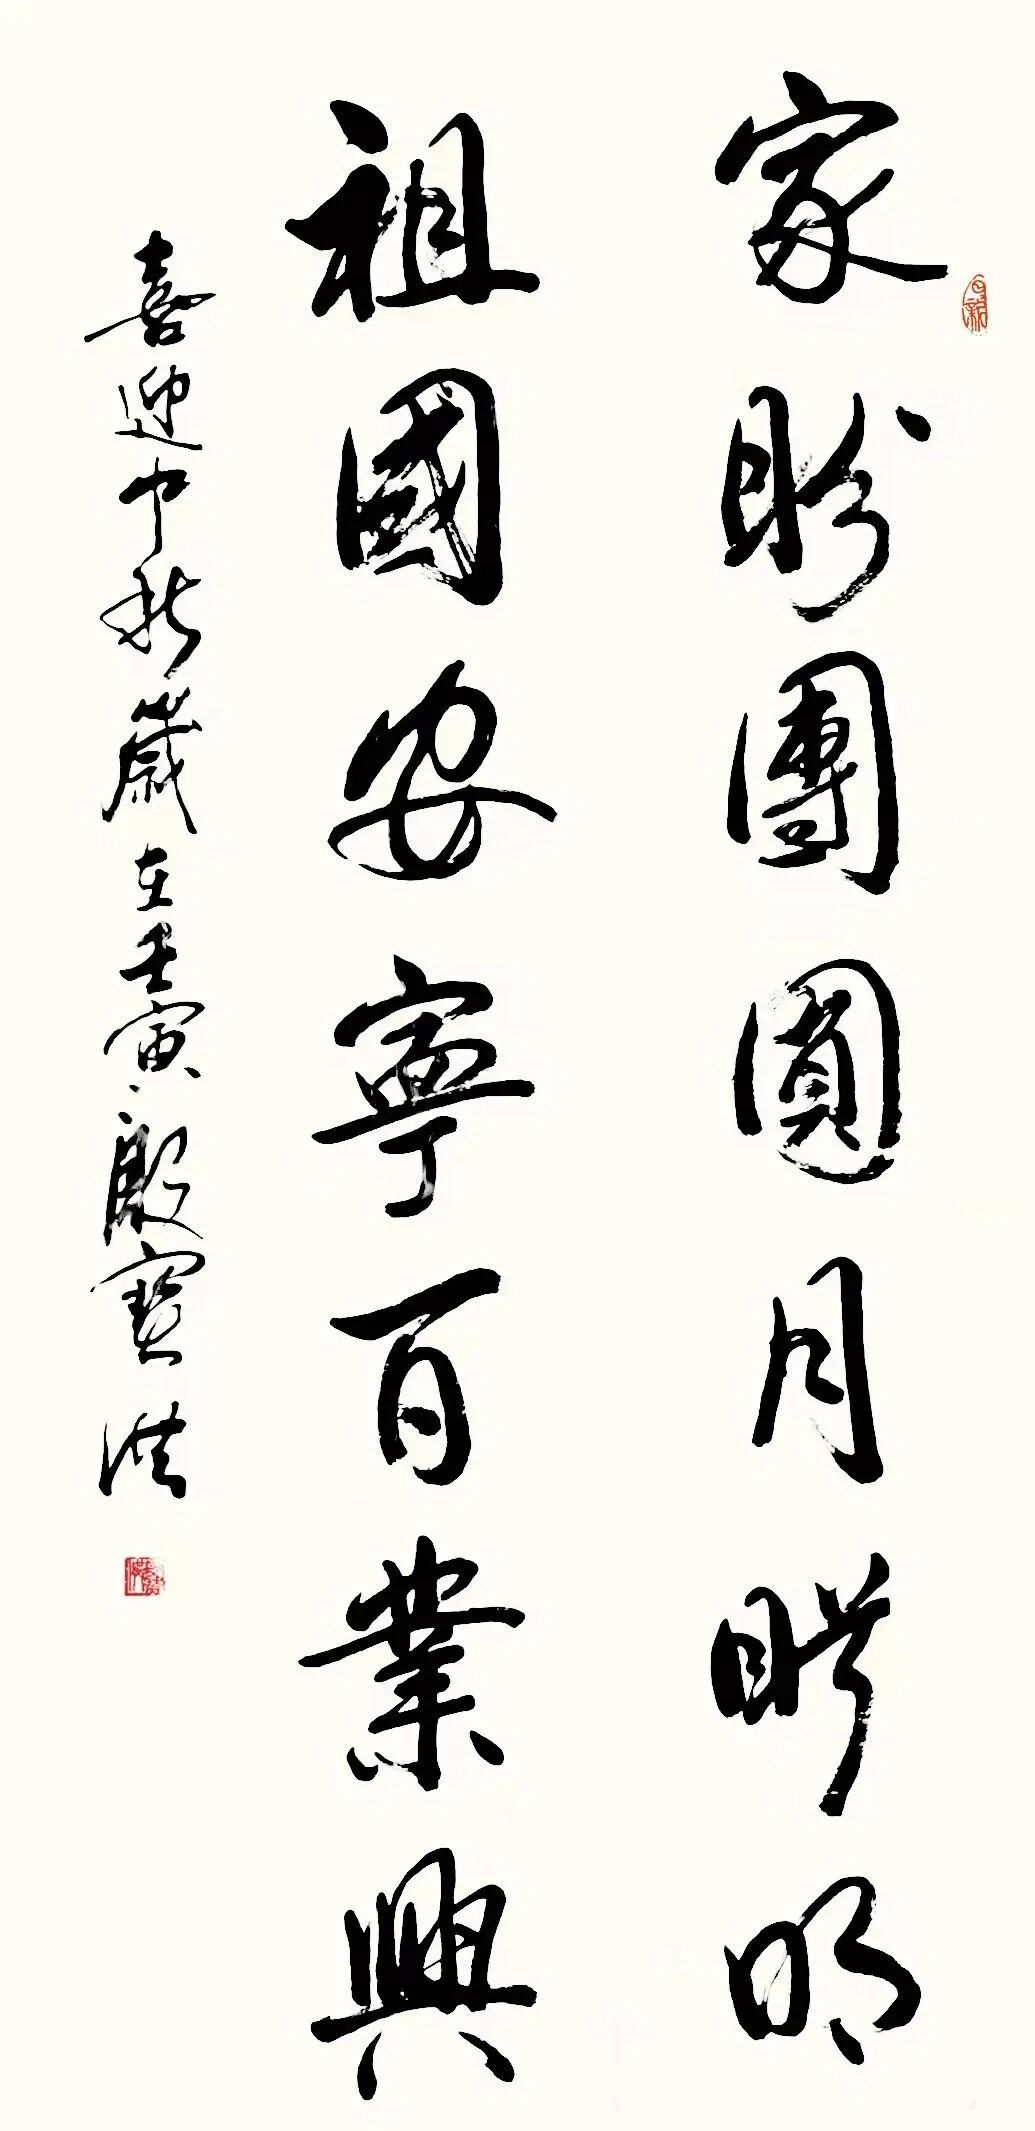 日新
家盼團圓月眸明
祖國安寧百業興
喜迎中秋歲在壬寅殷寶洪